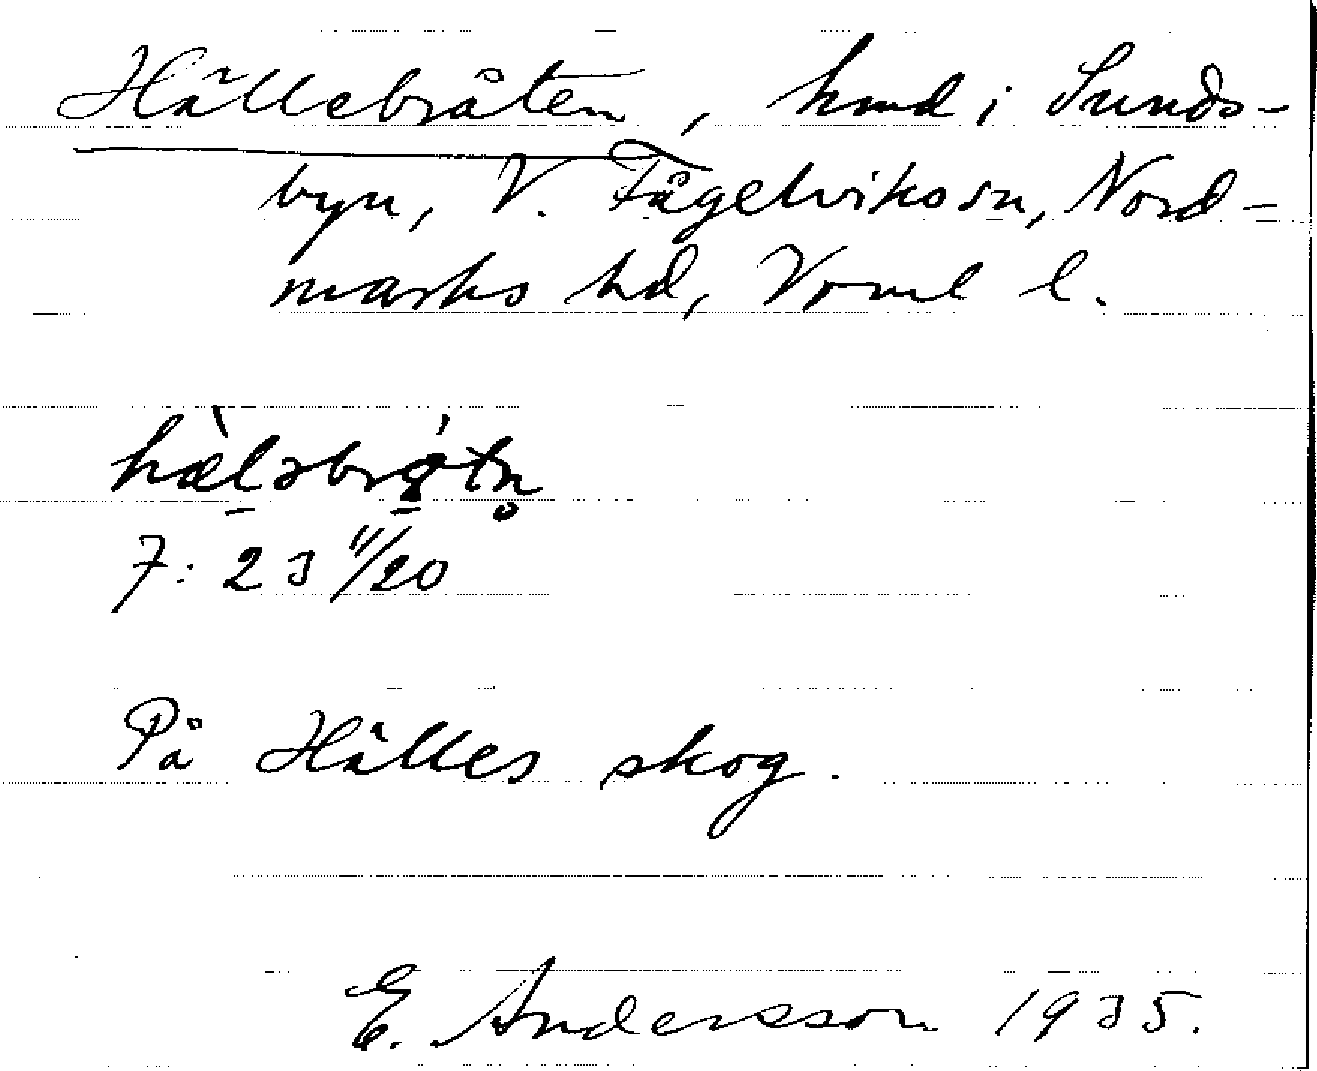 Hällebråten, hmd i Sunds-
byn, V. Fågelviks sn, Nord-
marks hd, Vrml l.
hὰləbrǻtn̥
7: 23 11/20
På Hälles skog.
E. Andersson 1935.